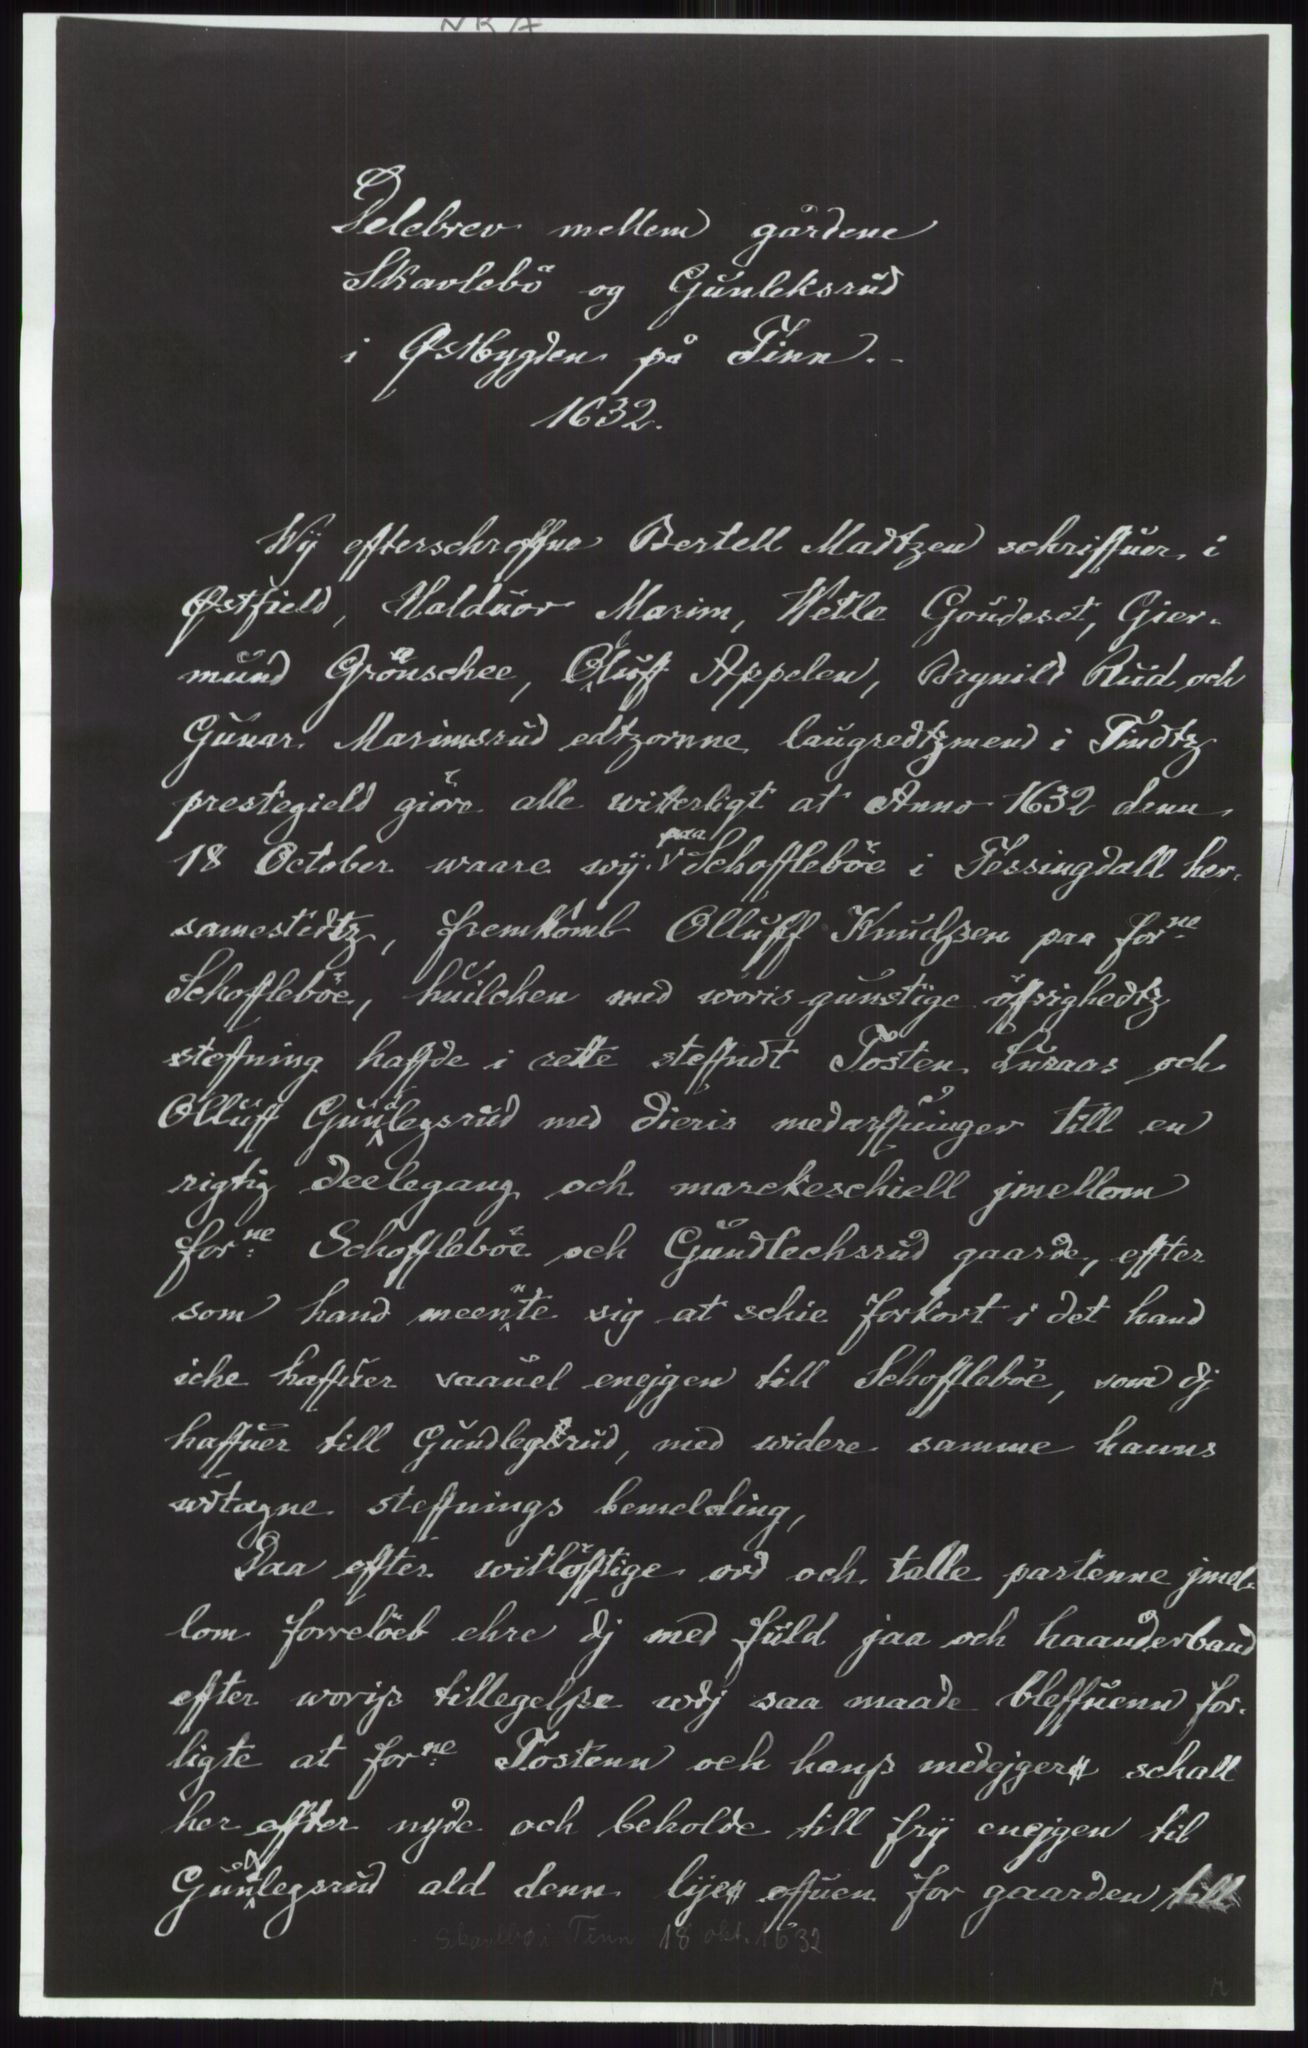 NRA
Delebrev mellem gårdene
Skavlebö og Gunleksrud
i Østbygden på Tinn.-
1632.
Wij efterschrefne Bertell Madtzen schriffuer i
Østfield, Halduor Marim, Wetle Goudeset, Gier-
mund Grönschee, Oluff Appelen, Brynild Rud och
Gunar Marimsrud edtzornne laugredtzmend i Tindtz
prestegield giöre alle witterligt at Anno 1632 denn
18 October waare wij paa Schoffleböe i Tessingdall her-
samestedtz, fremkomb Olluff Knudssen paa forne
Schoffleböe, huilcken med woris gunstige öffrighedtz
steffning haffde i rette steffndt Tosten Luraas och
Olluff Gunlegsrud med dieris medarffuinger till en
rigtig deelegang och marckeschiell jmellom
forne Schoffleböe och Gundlechsrud gaarde, effter
som hand meente sig at schie forkort i det hand
iche haffuer saauel enejgen till Schoffleböe, som dj
haffuer till Gundlegsrud, med widere samme hanns
wdtagne steffnings bemelding,
Daa efter witlöfftige ord och talle partenne jmel-
lom forrelöeb ehre dj med fuld jaa och haanderband
efter woriss tillegelsse wdj saa maade bleffuenn for-
ligte at forne Tostenn och hanss medejger schall
her effter nyde och beholde till frij enejgen til
Gunlegsrud ald denn lije effuen for gaarden till
Skavlebø i Tinn 18 okt. 1632